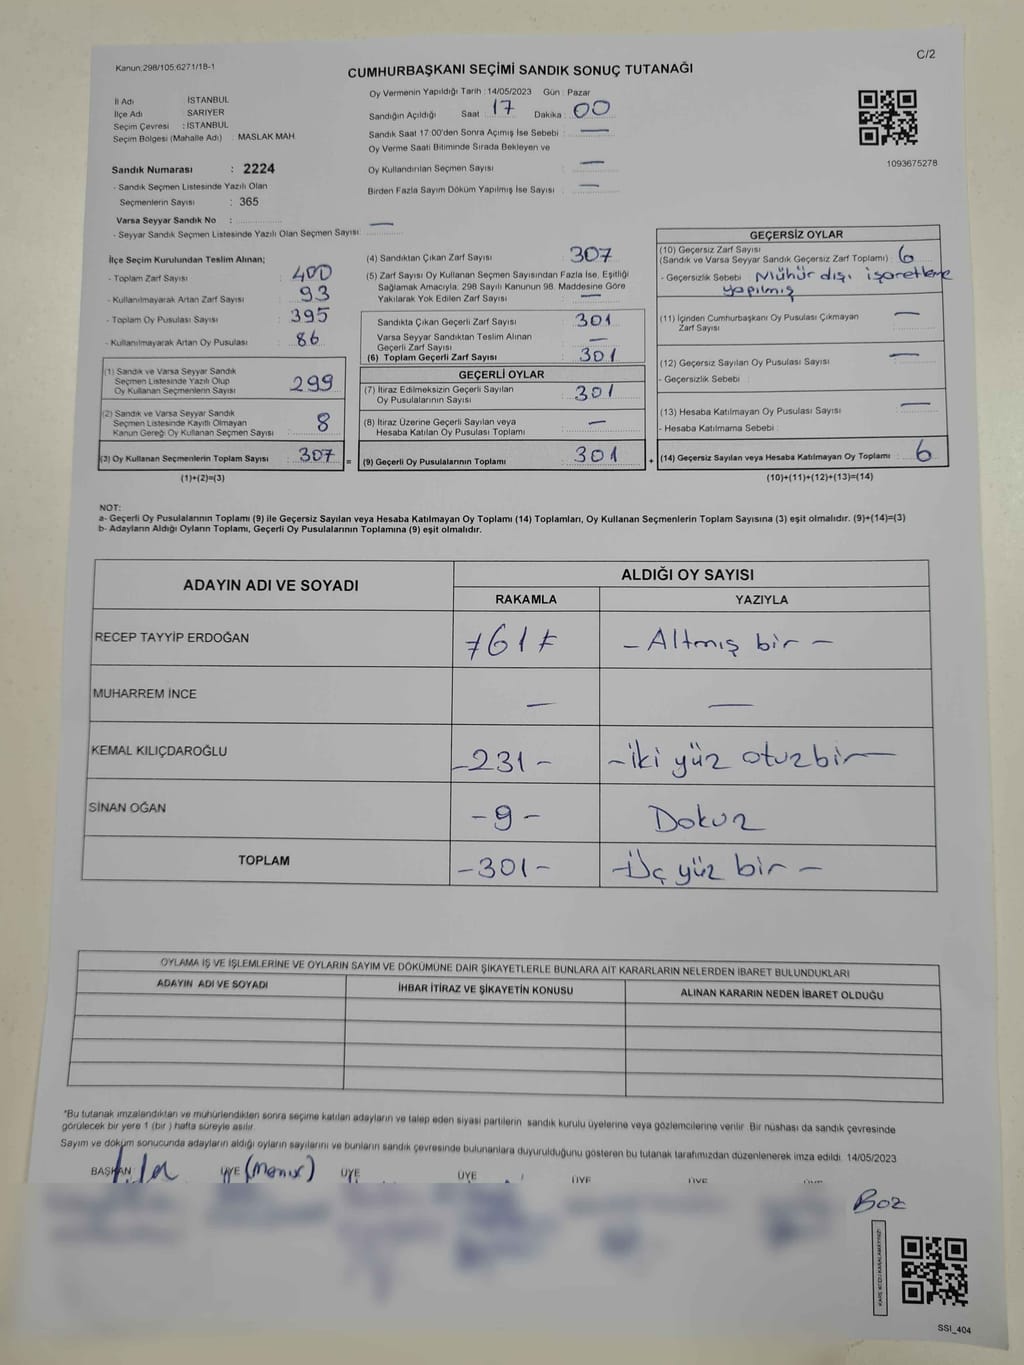 Kanun:298/105;6271/18-1
C/2
CUMHURBAŞKANI SEÇİMİ SANDIK SONUÇ TUTANAĞI
İl Adı İSTANBUL
İlçe Adı SARIYER
Seçim Çevresi : İSTANBUL
Seçim Bölgesi (Mahalle Adı) : MASLAK MAH
Sandık Numarası : 2224
- Sandık Seçmen Listesinde Yazılı Olan
Seçmenlerin Sayısı : 365
Varsa Seyyar Sandık No :
- Seyyar Sandık Seçmen Listesinde Yazılı Olan Seçmen Sayısı: —
Oy Vermenin Yapıldığı Tarih : 14/05/2023 Gün : Pazar
Sandığın Açıldığı Saat : 17 Dakika : 00
Sandık Saat 17:00'den Sonra Açımış İse Sebebi : —
Oy Verme Saati Bitiminde Sırada Bekleyen ve
Oy Kullandırılan Seçmen Sayısı : —
Birden Fazla Sayım Döküm Yapılmış İse Sayısı : —
1093675278
İlçe Seçim Kurulundan Teslim Alınan;
- Toplam Zarf Sayısı : 400
- Kullanılmayarak Artan Zarf Sayısı : 93
- Toplam Oy Pusulası Sayısı : 395
- Kullanılmayarak Artan Oy Pusulası : 86
(1) Sandık ve Varsa Seyyar Sandık
Seçmen Listesinde Yazılı Olup
Oy Kullanan Seçmenlerin Sayısı : 299
(2) Sandık ve Varsa Seyyar Sandık
Seçmen Listesinde Kayıtlı Olmayan
Kanun Gereği Oy Kullanan Seçmen Sayısı : 8
(3) Oy Kullanan Seçmenlerin Toplam Sayısı : 307
(1)+(2)=(3)
(4) Sandıktan Çıkan Zarf Sayısı : 307
(5) Zarf Sayısı Oy Kullanan Seçmen Sayısından Fazla İse, Eşitliği
Sağlamak Amacıyla; 298 Sayılı Kanunun 98. Maddesine Göre
Yakılarak Yok Edilen Zarf Sayısı : —
Sandıkta Çıkan Geçerli Zarf Sayısı : 301
Varsa Seyyar Sandıktan Teslim Alınan
Geçerli Zarf Sayısı : —
(6) Toplam Geçerli Zarf Sayısı : 301
GEÇERLİ OYLAR
(7) İtiraz Edilmeksizin Geçerli Sayılan
Oy Pusulalarının Sayısı : 301
(8) İtiraz Üzerine Geçerli Sayılan veya
Hesaba Katılan Oy Pusulası Toplamı : —
= (9) Geçerli Oy Pusulalarının Toplamı : 301
GEÇERSİZ OYLAR
(10) Geçersiz Zarf Sayısı
(Sandık ve Varsa Seyyar Sandık Geçersiz Zarf Toplamı) : 6
- Geçersizlik Sebebi : Mühür dışı işaretleme
yapılmış
(11) İçinden Cumhurbaşkanı Oy Pusulası Çıkmayan
Zarf Sayısı : —
(12) Geçersiz Sayılan Oy Pusulası Sayısı : —
- Geçersizlik Sebebi :
(13) Hesaba Katılmayan Oy Pusulası Sayısı : —
- Hesaba Katılmama Sebebi :
+ (14) Geçersiz Sayılan veya Hesaba Katılmayan Oy Toplamı : 6
(10)+(11)+(12)+(13)=(14)
NOT:
a- Geçerli Oy Pusulalarının Toplamı (9) ile Geçersiz Sayılan veya Hesaba Katılmayan Oy Toplamı (14) Toplamları, Oy Kullanan Seçmenlerin Toplam Sayısına (3) eşit olmalıdır. (9)+(14)=(3)
b- Adayların Aldığı Oyların Toplamı, Geçerli Oy Pusulalarının Toplamına (9) eşit olmalıdır.
ADAYIN ADI VE SOYADI
ALDIĞI OY SAYISI
RAKAMLA YAZIYLA
RECEP TAYYİP ERDOĞAN 61 - Altmış bir -
MUHARREM İNCE — —
KEMAL KILIÇDAROĞLU -231- -İki yüz otuzbir-
SİNAN OĞAN -9- Dokuz
TOPLAM -301- -Üç yüz bir -
OYLAMA İŞ VE İŞLEMLERİNE VE OYLARIN SAYIM VE DÖKÜMÜNE DAİR ŞİKAYETLERLE BUNLARA AİT KARARLARIN NELERDEN İBARET BULUNDUKLARI
ADAYIN ADI VE SOYADI İHBAR İTİRAZ VE ŞİKAYETİN KONUSU ALINAN KARARIN NEDEN İBARET OLDUĞU
*Bu tutanak imzalandıktan ve mühürlendikten sonra seçime katılan adayların ve talep eden siyasi partilerin sandık kurulu üyelerine veya gözlemcilerine verilir. Bir nüshası da sandık çevresinde
görülecek bir yere 1 (bir ) hafta süreyle asılır.
Sayım ve döküm sonucunda adayların aldığı oyların sayılarını ve bunların sandık çevresinde bulunanlara duyurulduğunu gösteren bu tutanak tarafımızdan düzenlenerek imza edildi. 14/05/2023
BAŞKAN ÜYE (Memur) ÜYE ÜYE ÜYE ÜYE
Boz
KARE KODU KARALAMAYINIZ!
SSI_404